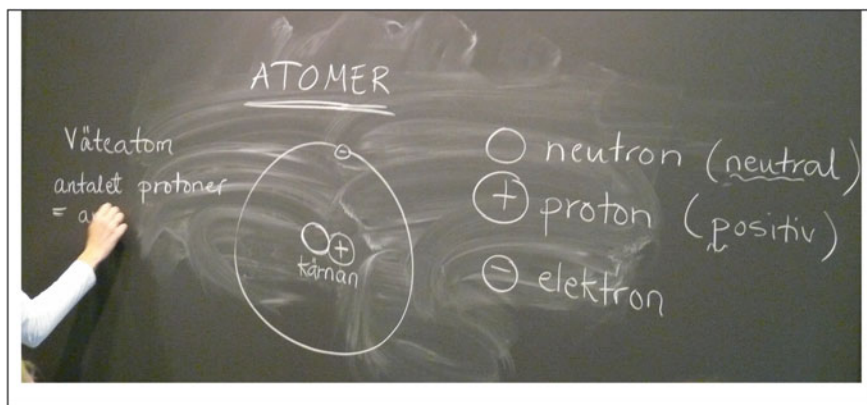 ATOMER
Väteatom
antalet protoner
= a
kärnan
neutron (neutral)
proton (positiv)
elektron